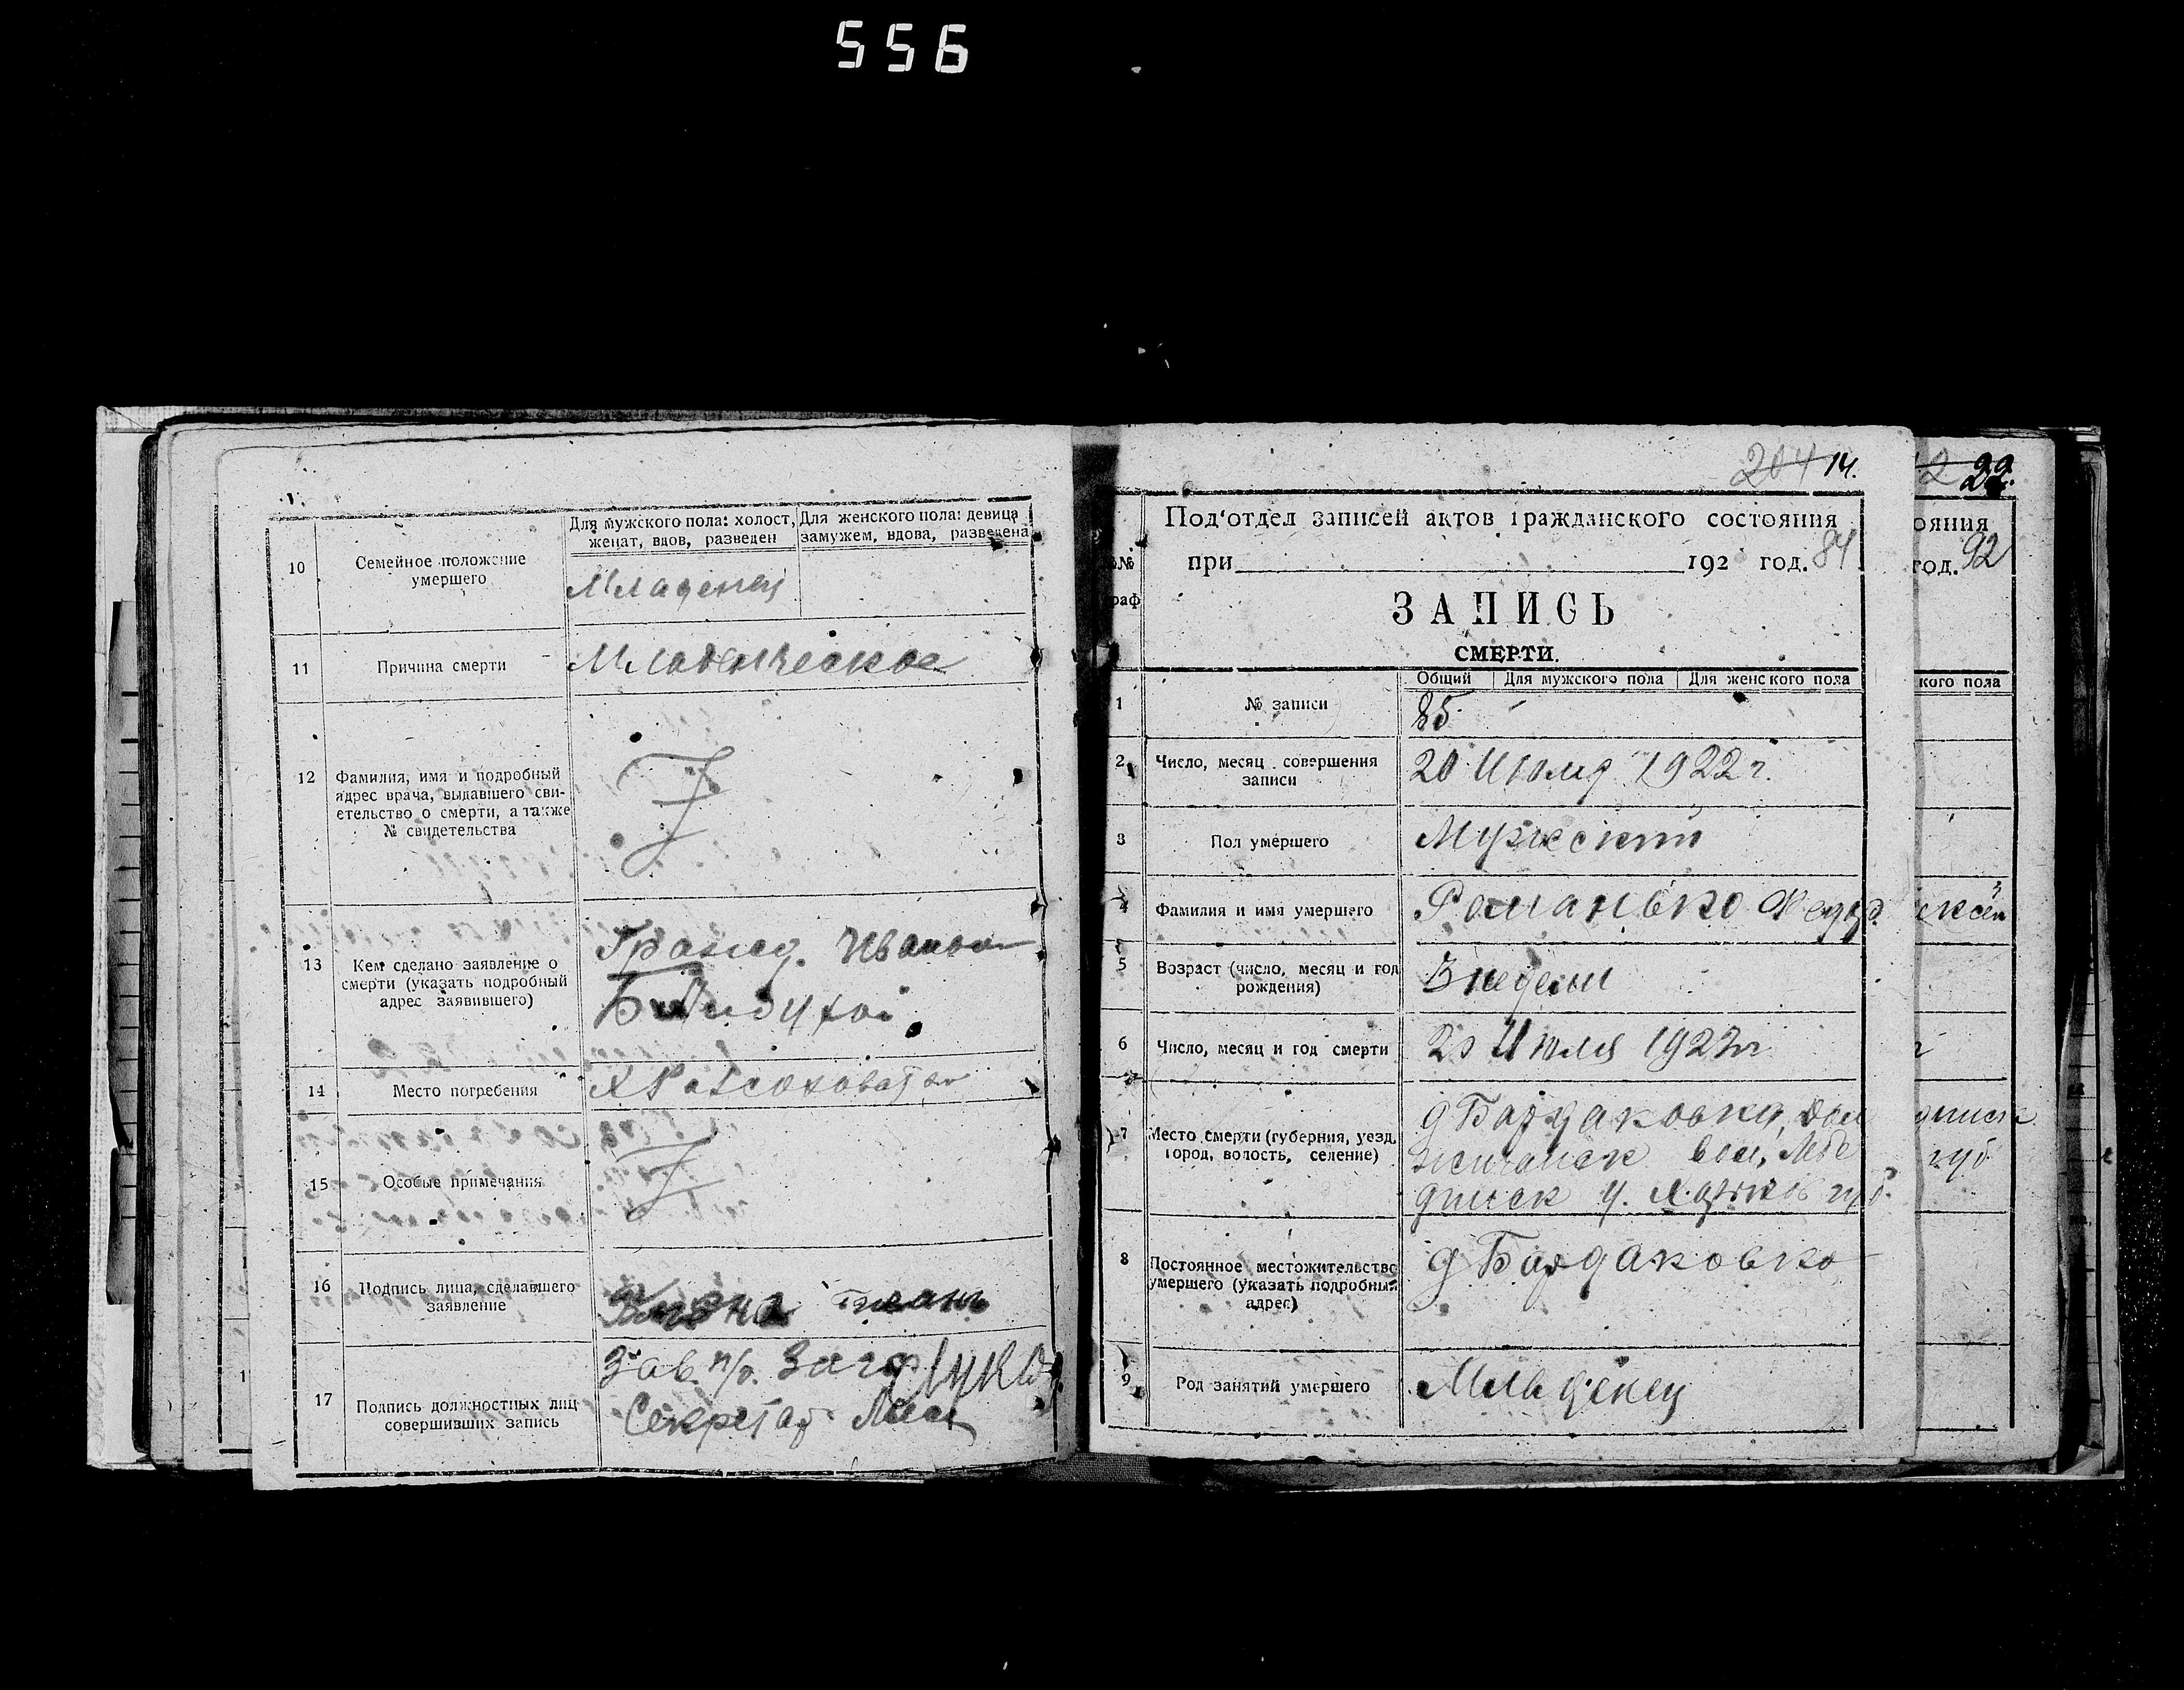 556
10
Семейное положение
умершего
Для мужского пола: холост,
женат, вдов, разведен
Для женского пола: девица
замужем, вдова, разведена
Младенец
11
Причина смерти
Младенческое
12
Фамилия, имя и подробный
адрес врача, выдавшего сви-
етельство о смерти, а также
№ свидетельства
13
Кем сделано заявление о
смерти (указать подробный
адрес заявившего)
Гражд. Иваном
14
Место погребения
15
Особые примечания
16
Подпись лица, сделавшего
заявление
17
Подпись должностных лиц
совершивших запись
Зав. п/о. Загс
Секретар
204 14.
Под'отдел записей актов гражданского состояния
при 192 год. 84
№№
раф
ЗАПИСЬ
СМЕРТИ.
Общий Для мужского пола Для женского пола
1
№ записи
85
2
Число, месяц совершения
записи
20 Июля 1922 г.
3
Пол умершего
Мужский
4
Фамилия и имя умершего
Романько Федор
5
Возраст (число, месяц и год
рождения)
3 недели
6
Число, месяц и год смерти
20 Июля 1922 г
7
Место смерти (губерния, уезд,
город, волость, селение)
д Бардаковка, Дол
жичанск вол, Лебе
динск у. Харьков губ.
8
Постоянное местожительство
умершего (указать подробный
адрес)
д Бардаковко
9
Род занятий умершего
Младенец
22.
ояния
год. 92
кого пола
динск
губ